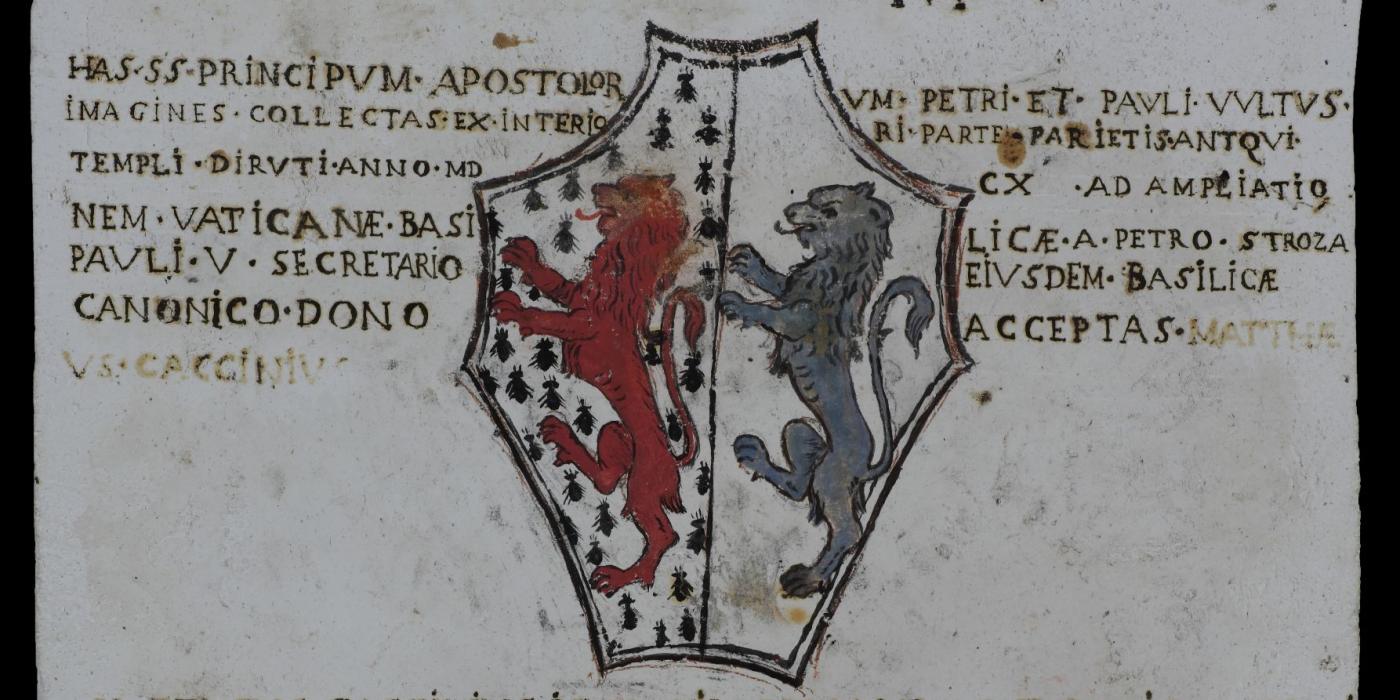 HAS·SS·PRINCIPVM·APOSTOLOR VM·PETRI·ET·PAVLI·VVLTVS·
IMAGINES·COLLECTAS·EX·INTERIO RI·PARTE·PARIETIS·ANTQVI·
TEMPLI·DIRVTI·ANNO·MD CX ·AD AMPLIATIO
NEM·VATICANÆ·BASI LICÆ·A·PETRO·STROZA
PAVLI·V·SECRETARIO EIVSDEM·BASILICÆ
CANONICO·DONO ACCEPTAS·MATTHÆ
VS·CACCINIVS